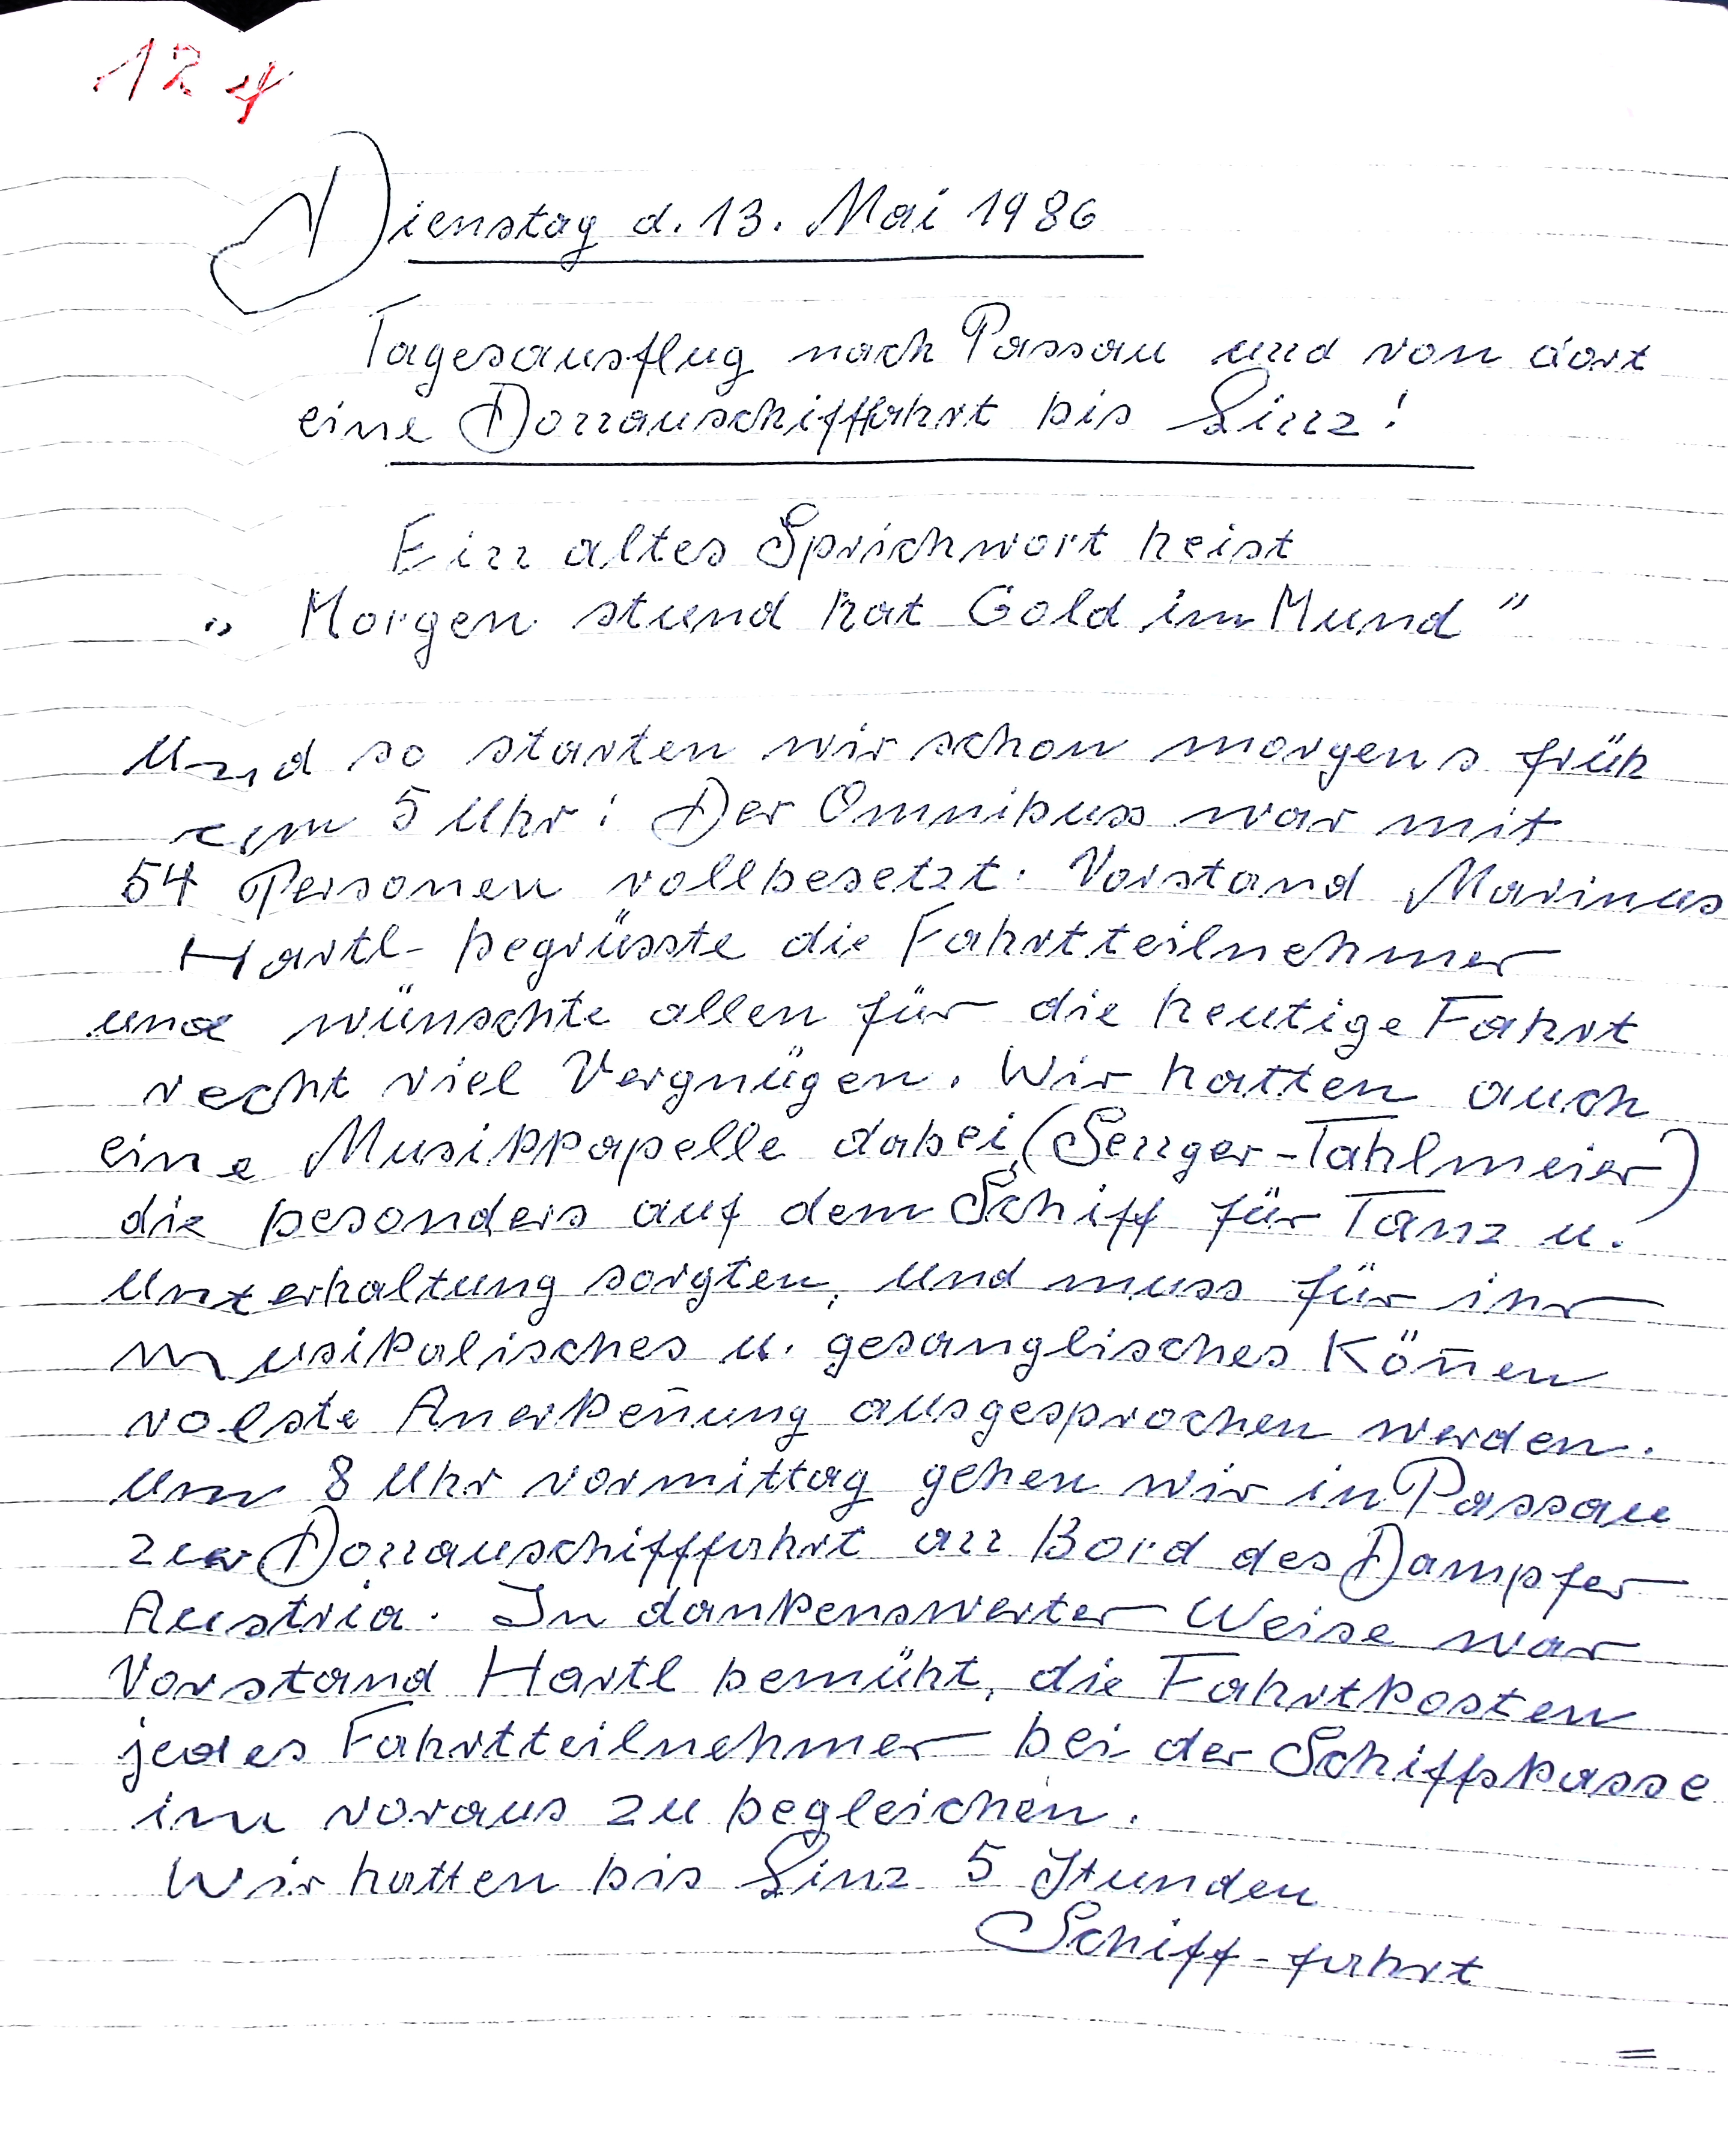 12
Dienstag d. 13. Mai 1986
Tagesausflug nach Passau und von dort
eine Donauschifffahrt bis Linz!
Ein altes Sprichwort heist
„ Morgen stund hat Gold im Mund "
Und so starten wir schon morgens früh
um 5 Uhr! Der Omnibuss war mit
54 Personen vollbesetzt. Vorstand Marinus
Hartl- begrüsste die Fahrtteilnehmer
und wünschte allen für die heutige Fahrt
recht viel Vergnügen. Wir hatten auch
eine Musikkapelle dabei, (Senger-Tahlmeier)
die besonders auf dem Schiff für Tanz u.
Unterhaltung sorgten, und muss für ihr
musikalisches u. gesanglisches Kön̄en
volste Anerken̄ung ausgesprochen werden.
Um 8 Uhr vormittag gehen wir in Passau
zur Donauschifffahrt an Bord des Dampfer
Austria. In dankenswerter Weise war
Vorstand Hartl bemüht, die Fahrtkosten
jedes Fahrtteilnehmer bei der Schiffskasse
im voraus zu begleichen.
Wir hatten bis Linz 5 Stunden
Schiff-fahrt
=